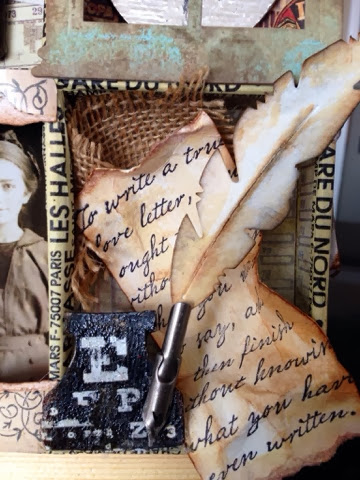 ARE DU NORD
LES HALLES
MARS F-75007 PARIS
ARE DU NORD
To write a true
love letter,
ought
witho
you
say, a
then finish
without knowin
what you have
even written.
E
F P
2 3